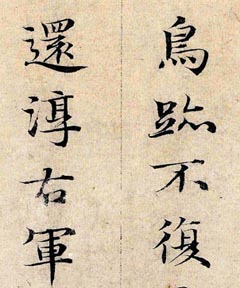 鳥跡不復
還淳右軍